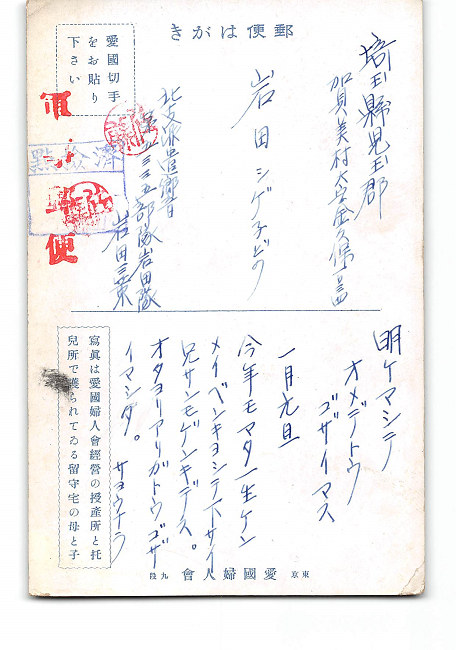 郵便はがき
愛國切手
をお貼り
下さい
軍事郵便
檢閲濟
埼玉縣児玉郡
賀美村大字金久保
岩田シゲ子どの
北支派遣
部隊岩田隊
岩田
明ケマシテ
オメデトウ
ゴザイマス
一月元旦
今年モマタ一生ケン
メイベンキヨシテ下サイ
兄サンモゲンキデス。
オタヨリアリガトウゴザ
イマシタ。 サヨウナラ
寫眞は愛國婦人會經營の授産所と托
兒所で護られてゐる留守宅の母と子
東京 愛國婦人會 九段